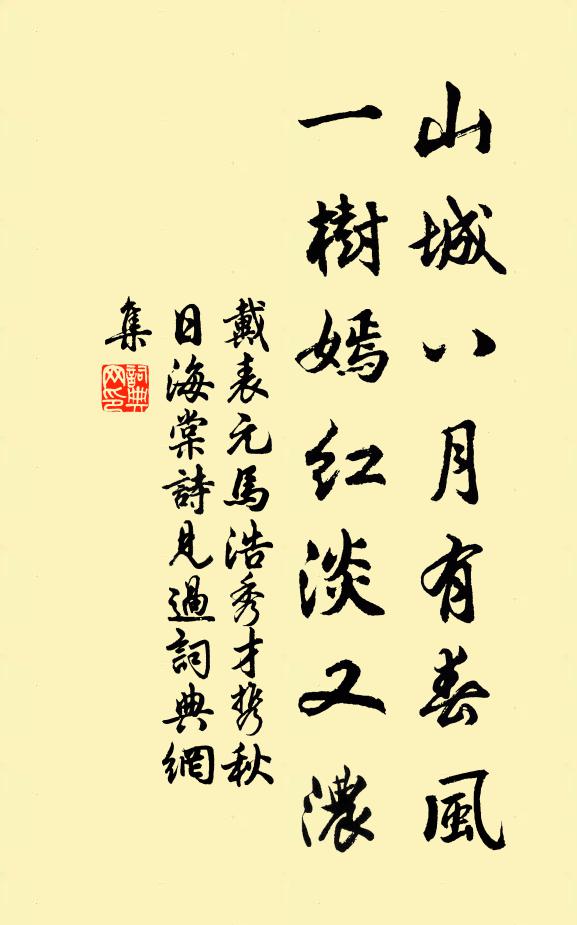 山城八月有春風
一樹嫣紅淡又濃
戴表元馬浩秀才携秋
日海棠詩見過詞典網
集
詞典
網印